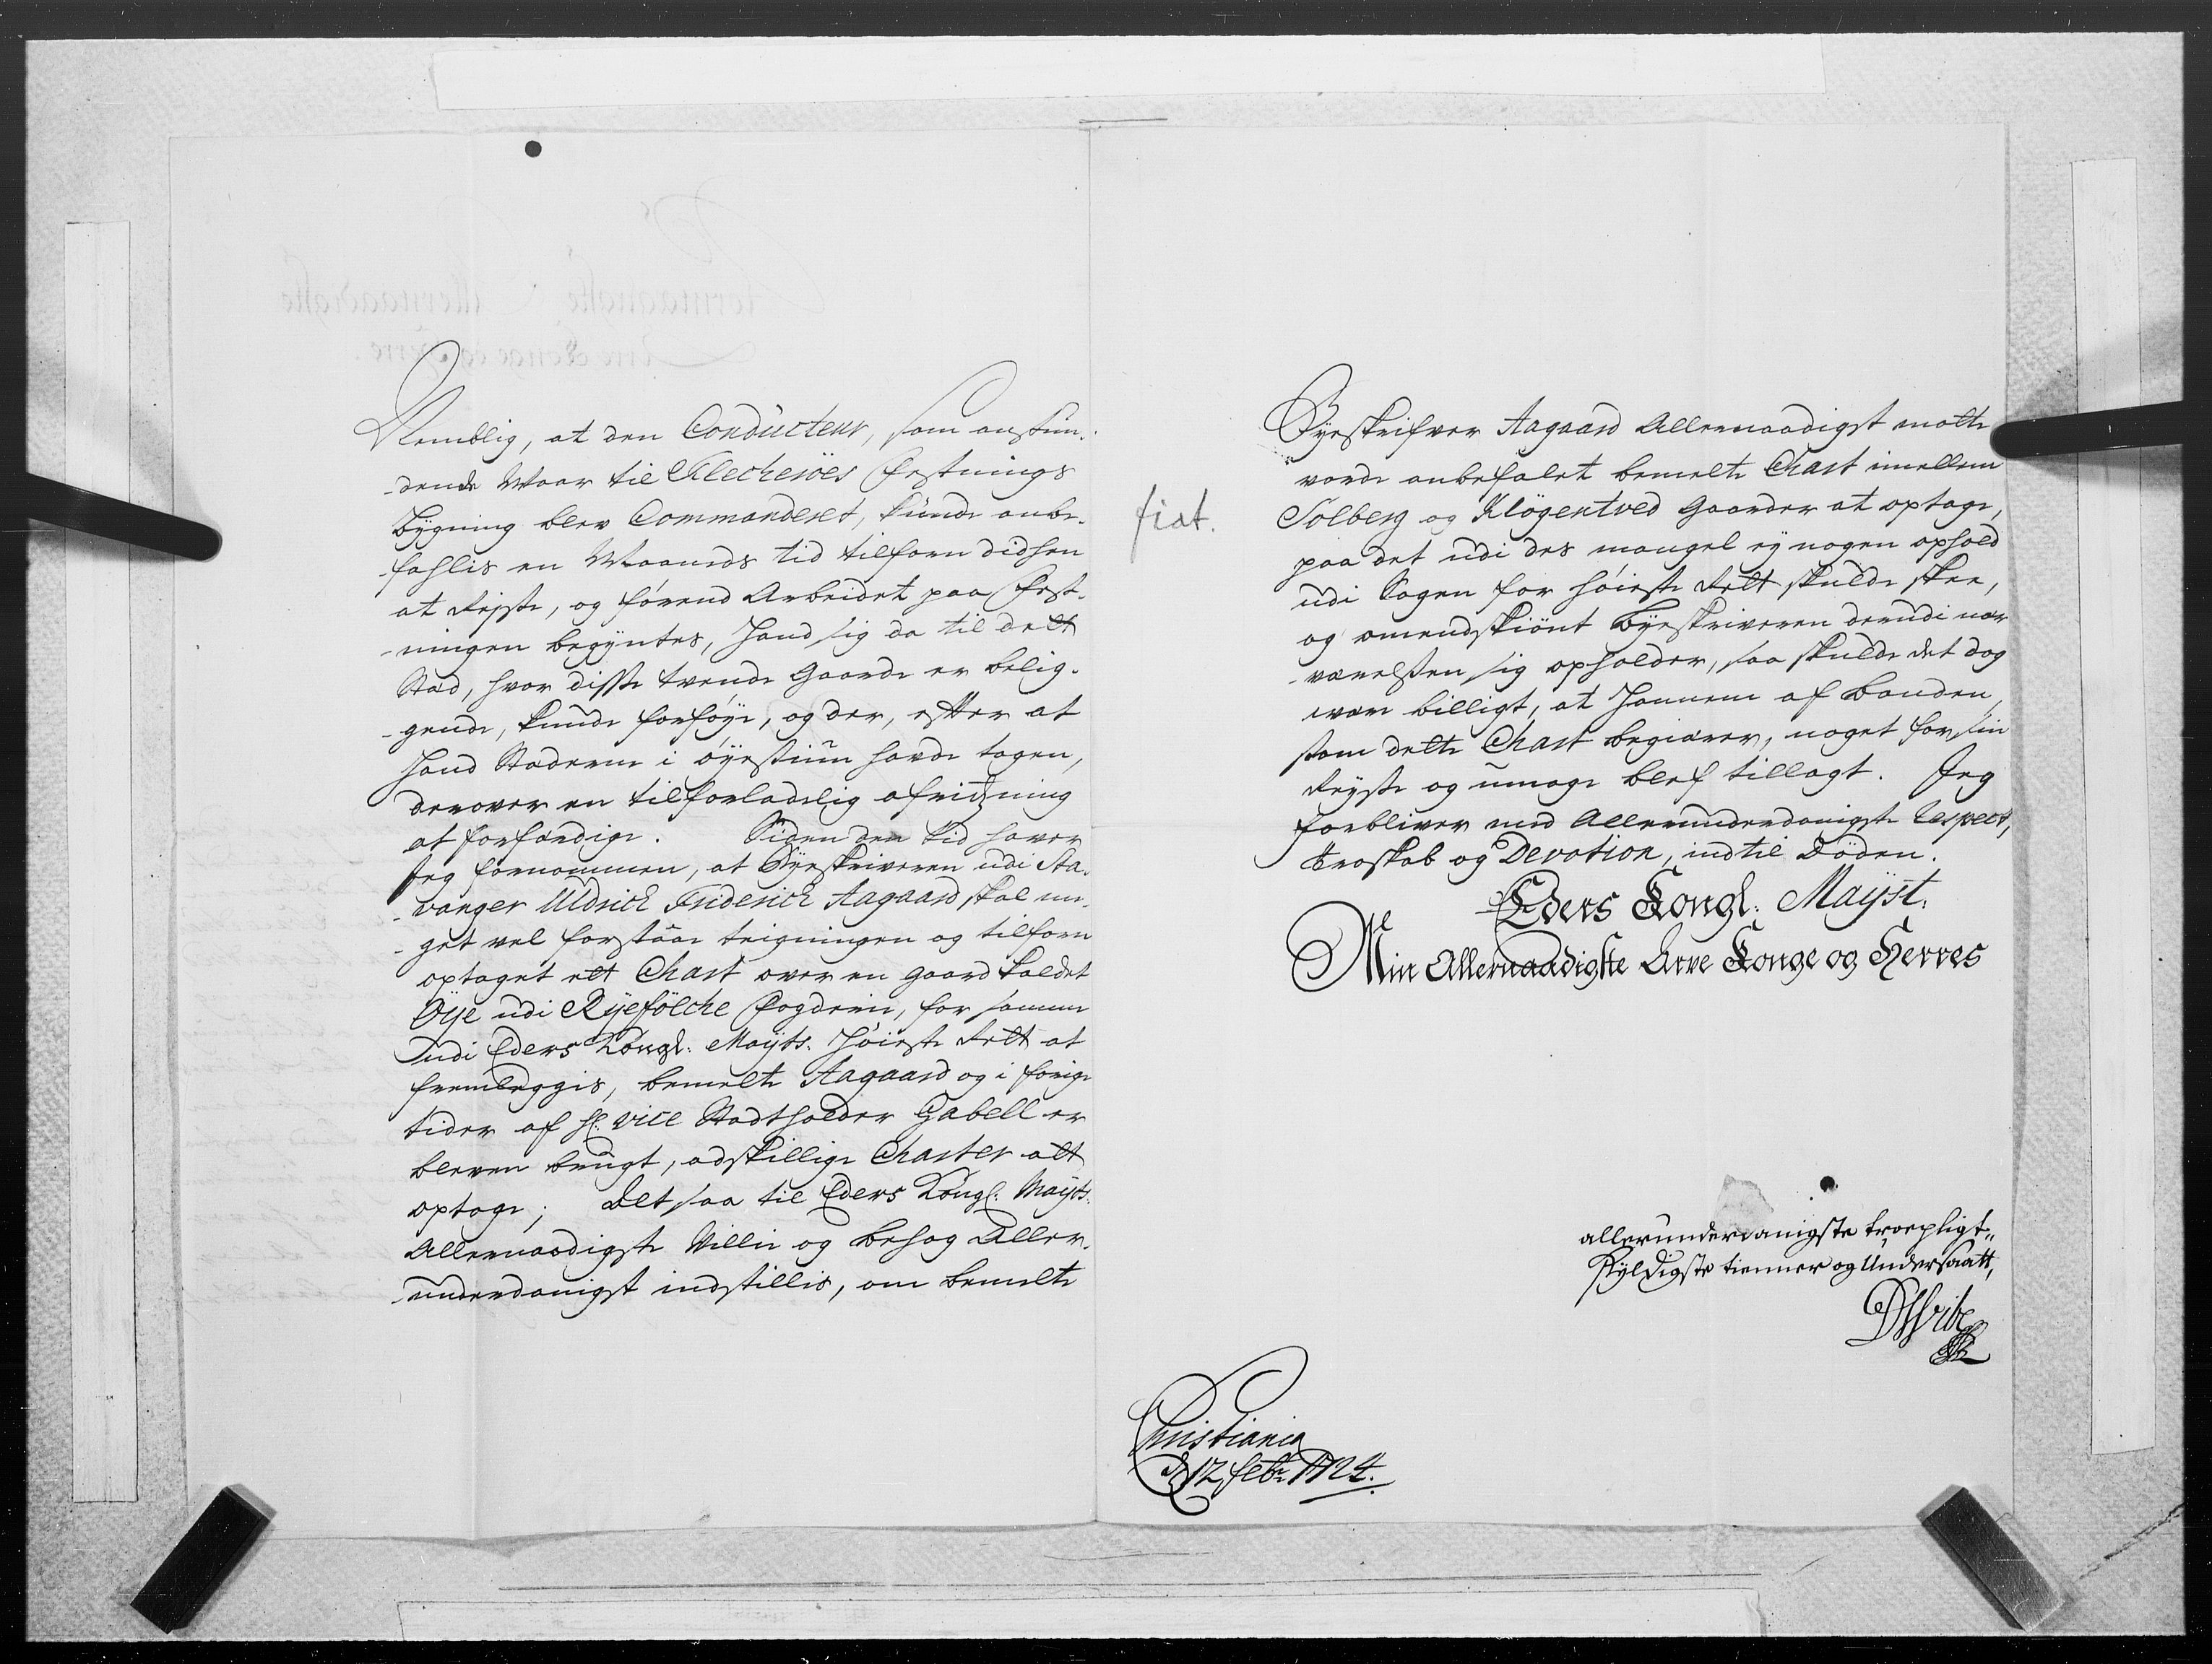 Nemblig, at den Conducteur, som anstun-
-dende Waar til Flecherøes Festnings
bygning blev Commanderet, kunde anbe-
-fahlis en Maaneds tid tilforn didhen
at Rejse, og førend Arbeidet paa Fest-
-ningen begyntes, Hand sig da til dett
Stæd, hvor disse tvende Gaarde er belig-
-gende, kunde forføye, og der, effter at
Hand Stæderne i øyesiun hafde tagen,
derover en tilforladelig afridsning
at forfærdige. Siden den tid haver
Jeg fornommen, at Byeskriveren udi Sta-
-vanger Uldrich Friderich Aagaard skal me-
-get vel forstaae teigningen og tilforn
optaget ett Chart over en gaard kaldet
Øye udi Ryefølche Fogderie, for samme
udi Eders Kongl: Mayts. Høieste Rett at
fremleggis, bemelte Aagaard og i forige
tider af H: vice Stadtholder Gabell er
bleven brugt, adskillige Charter att
optage; Det saa til Eders Kongl. Mayts.
Allernaadigste Villie og behag Aller-
-underdanigst indstillis, om bemelte
fiat.
Byeskrifver Aagaard Allernaadigst motte
vorde anbefalet bemelte Chart imellem
Solberg og Kløgentved Gaarder at optage,
paa det udi des mangel ey nogen ophold
udi Sagen for høieste Rett skulde skee,
og omendskiønt Byeskriveren derudi nær
-værelsen sig opholder, saa skulde det dog
være billigt, at Hannem af bonden,
som dette Chart begiærer, noget for sin
Reyse og umage blef tillagt. Jeg
forbliver med Allerunderdanigste Respect,
troskab og Devotion, indtil Døden.
Eders Kongl. Mayst.
Min Allernaadigste Arve Konge og Herres
allerunderdanigste troepligt-
skyldigste tienner og Undersaatt,
DVibe
Christiania
d 12 febr: 1724.